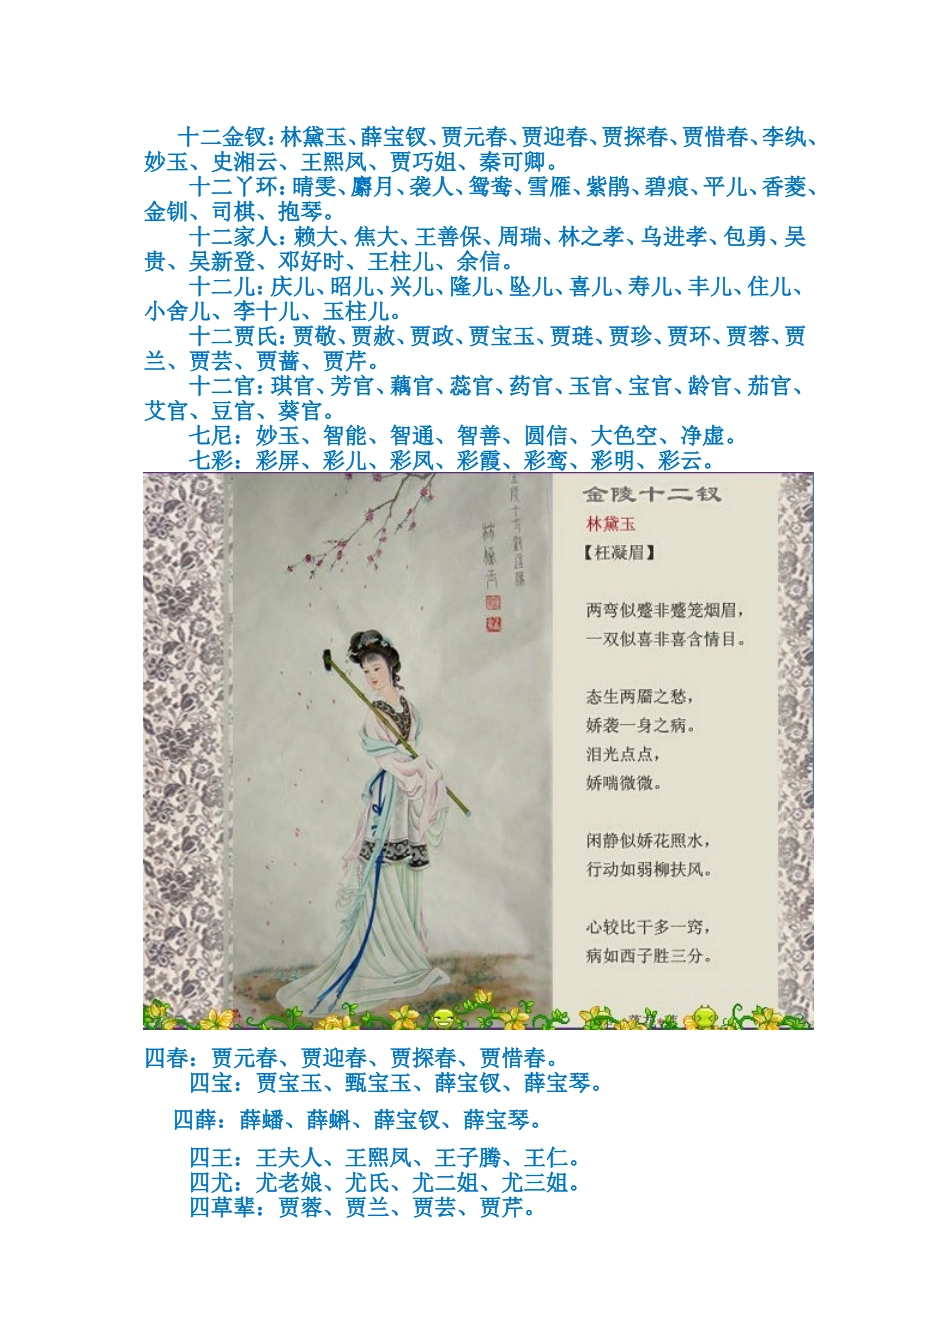 十二金钗：林黛玉、薛宝钗、贾元春、贾迎春、贾探春、贾惜春、李纨、
妙玉、史湘云、王熙凤、贾巧姐、秦可卿。
十二丫环：晴雯、麝月、袭人、鸳鸯、雪雁、紫鹃、碧痕、平儿、香菱、
金钏、司棋、抱琴。
十二家人：赖大、焦大、王善保、周瑞、林之孝、乌进孝、包勇、吴
贵、吴新登、邓好时、王柱儿、余信。
十二儿：庆儿、昭儿、兴儿、隆儿、坠儿、喜儿、寿儿、丰儿、住儿、
小舍儿、李十儿、玉柱儿。
十二贾氏：贾敬、贾赦、贾政、贾宝玉、贾琏、贾珍、贾环、贾蓉、贾
兰、贾芸、贾蔷、贾芹。
十二官：琪官、芳官、藕官、蕊官、药官、玉官、宝官、龄官、茄官、
艾官、豆官、葵官。
七尼：妙玉、智能、智通、智善、圆信、大色空、净虚。
七彩：彩屏、彩儿、彩凤、彩霞、彩鸾、彩明、彩云。
金陵十二钗
林黛玉
【枉凝眉】
两弯似蹙非蹙笼烟眉，
一双似喜非喜含情目。
态生两靥之愁，
娇袭一身之病。
泪光点点，
娇喘微微。
闲静似娇花照水，
行动如弱柳扶风。
心较比干多一窍，
病如西子胜三分。
四春：贾元春、贾迎春、贾探春、贾惜春。
四宝：贾宝玉、甄宝玉、薛宝钗、薛宝琴。
四薛：薛蟠、薛蝌、薛宝钗、薛宝琴。
四王：王夫人、王熙凤、王子腾、王仁。
四尤：尤老娘、尤氏、尤二姐、尤三姐。
四草辈：贾蓉、贾兰、贾芸、贾芹。